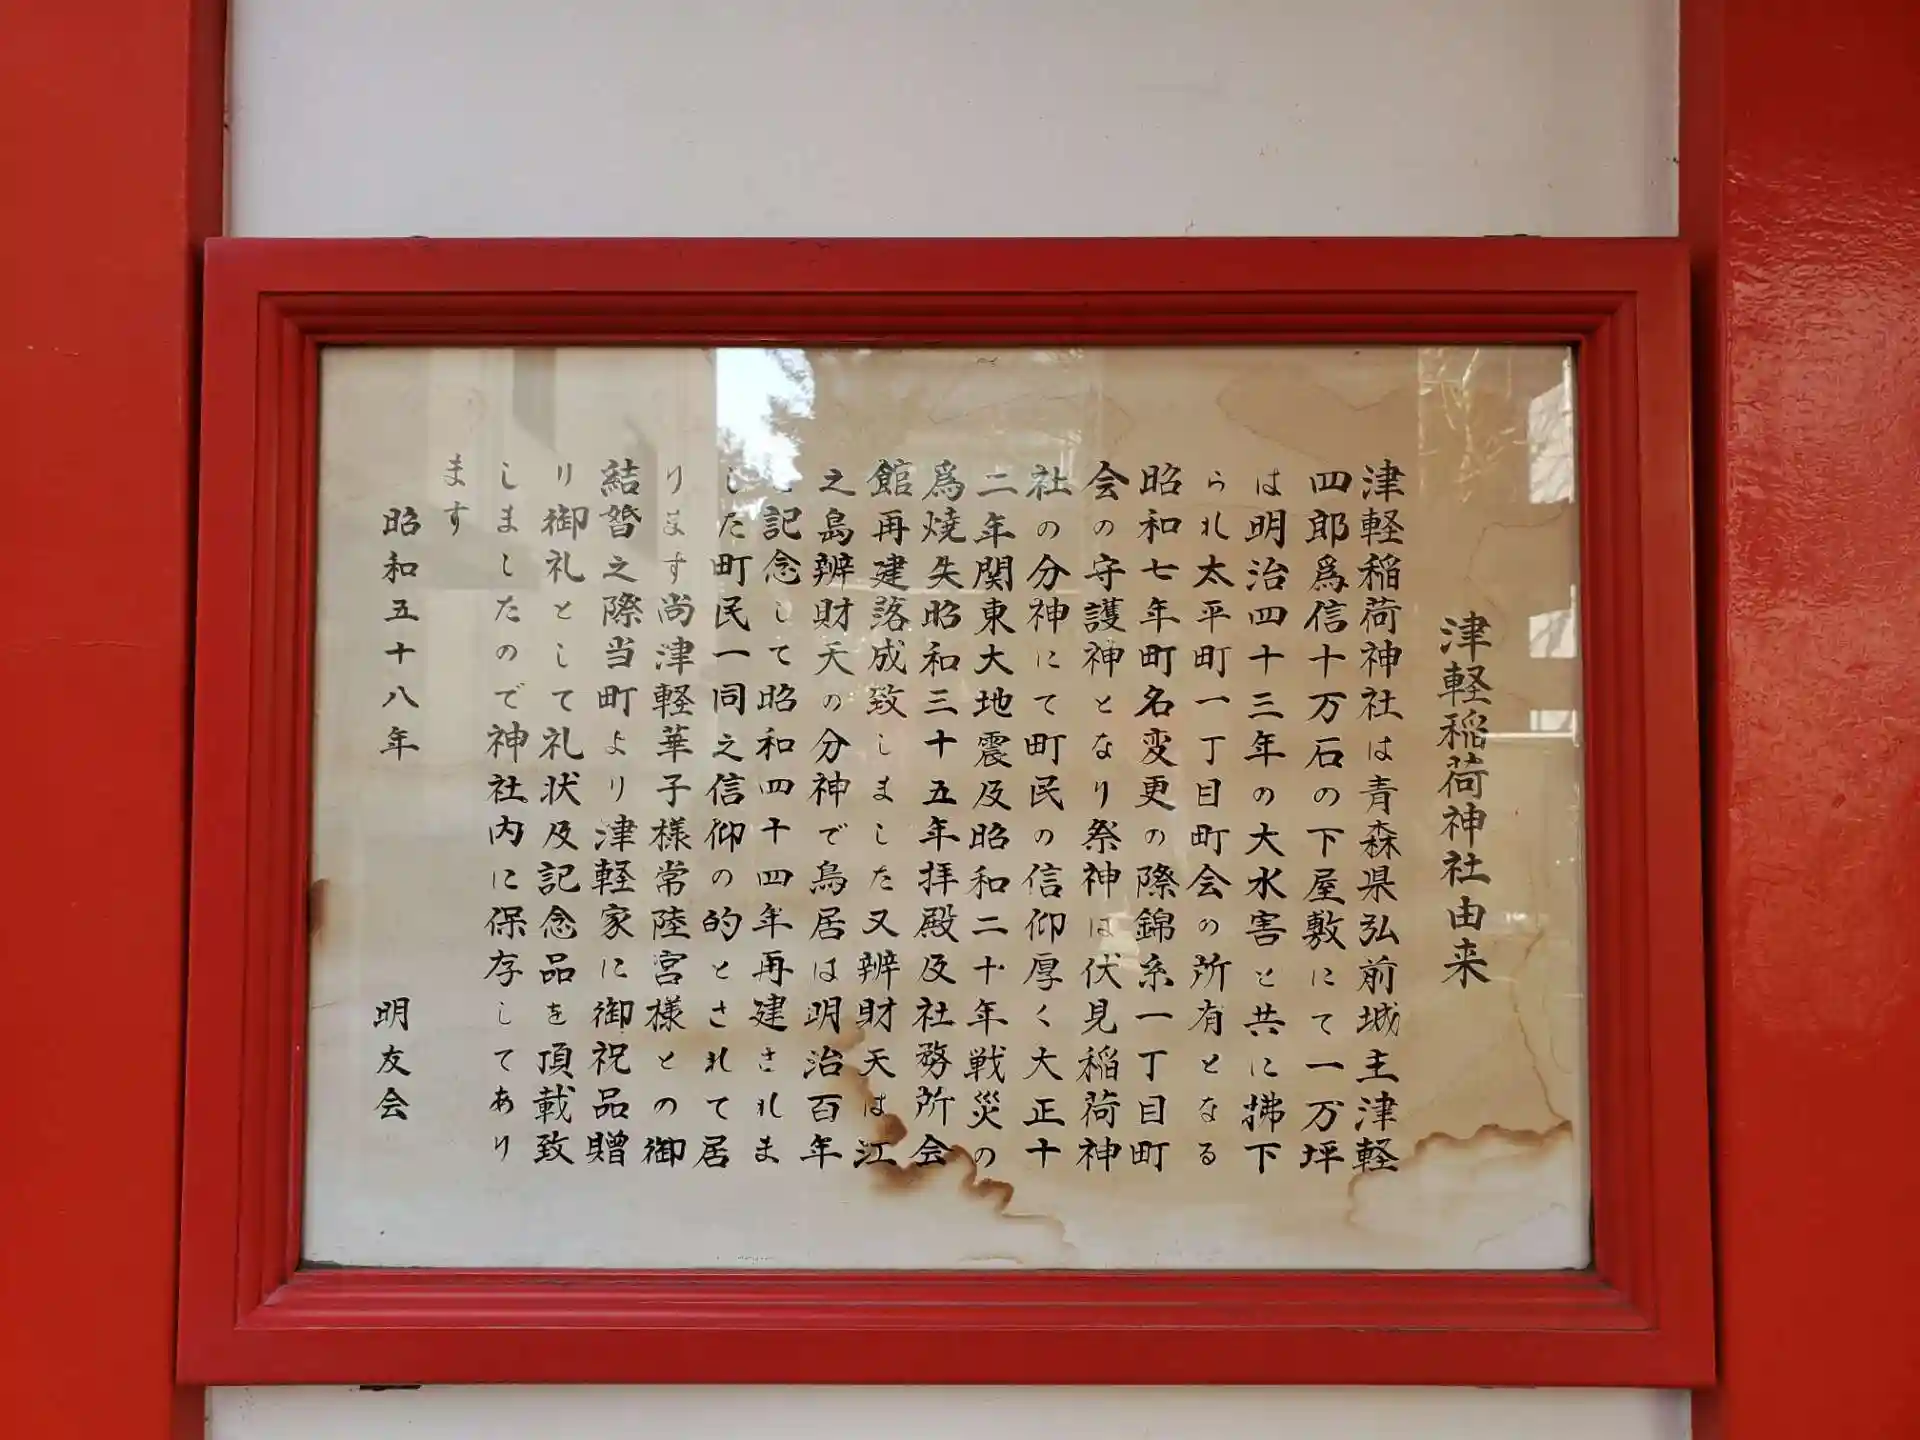 津軽稲荷神社由来
津軽稲荷神社は青森県弘前城主津軽
四郎爲信十万石の下屋敷にて一万坪
は明治四十三年の大水害と共に拂下
られ太平町一丁目町会の所有となる
昭和七年町名変更の際錦糸一丁目町
会の守護神となり祭神は伏見稲荷神
社の分神にて町民の信仰厚く大正十
二年関東大地震及昭和二十年戦災の
爲焼失昭和三十五年拝殿及社務所会
館再建落成致しました又辨財天は江
之島辨財天の分神で鳥居は明治百年
記念して昭和四十四年再建されま
した町民一同之信仰の的とされて居
ります尚津軽華子様常陸宮様との御
結婚之際当町より津軽家に御祝品贈
り御礼として礼状及記念品を頂載致
しましたので神社内に保存してあり
ます
昭和五十八年 明友会